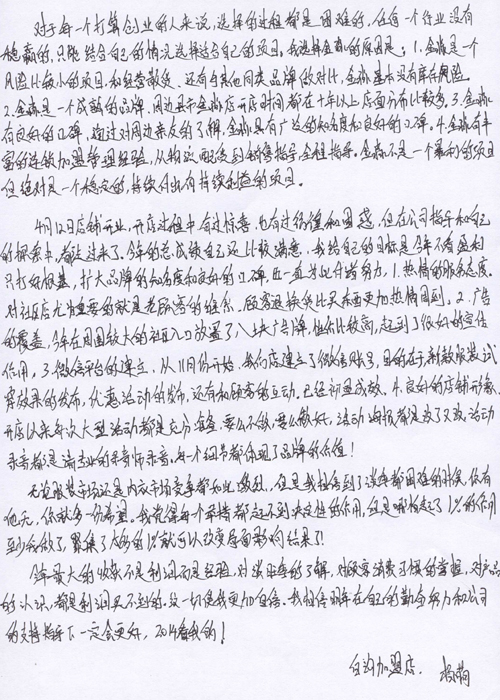 对于每一个打算创业的人来说,选择的过程都是困难的,任何一个行业没有
稳赢的,只能结合自己的情况选择适合自己的项目,我选择金 的原因是:1.金 是一个
风险比较小的项目,和经营散货、还有与其他同类品牌的对比,金 基本没有库存风险。
2.金 是一个成熟的品牌、周边县市金 店开店时间都在十年以上店面分布比较多,3.金
有良好的口碑,通过对周边亲友的了解,金 具有广泛的知名度和良好的口碑。4.金 有丰
富的连锁加盟管理经验,从物流配货到销售指导,全程指导。金 不是一个暴利的项目
但绝对是一个稳定的,持续付出有持续利益的项目。
4月12日店铺开业,开店过程中有过惊喜,也有过彷徨和困惑,但在公司指导和自己
的摸索中,都走过来了。今年的总成绩自己还比较满意,我给自己的目标是今年不看盈利
只打好根基,扩大品牌的知名度和良好的口碑,也一直为此付诸努力,1.热情的服务态度。
对社区店尤为重要的就是老顾客的维系,顾客退换货比买东西更加热情周到。2.广告
的覆盖,今年在周围较大的社区入口放置了八块广告牌,位置比较高,起到了很好的宣传
作用。3.微信平台的建立。从11月份开始,我们店建立了微信账号,目的在于新款服装试
穿效果的发布,优惠活动的发布,还有和顾客的互动,已经初显成效。4.良好的店铺形象,
开店以来每次大型活动都是充分准备,要么不做,要么做好,活动海报都是改了又改,活动
录音都是请专业的录音师录音,每一个细节都体现了品牌的价值!
无论服装市场还是内衣市场竞争都如此激烈,但是我相信到了谁都困难的时候,你有
他无,你就多一份希望。我觉得每个举措都起不到决定性的作用,但是哪怕起了1%的作用
至少我做了,聚集了大多的1%就可以改变局面影响结果了!
今年最大的收获不是利润而是经验,对淡旺季的了解,对顾客消费习惯的掌握,对产品
的认识,都是利润买不到的。这一切使我更加自信。我相信明年在自己的勤奋努力和公司
的支持指导下一定会更好,2014看我的!
加盟店. 杨